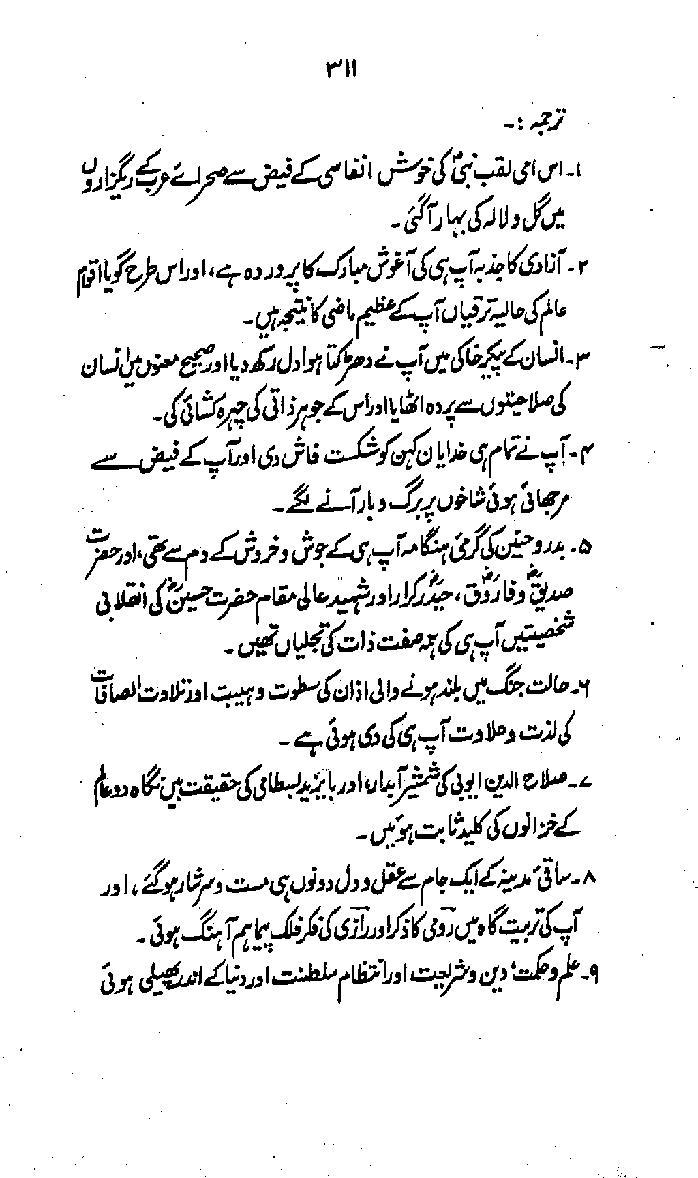 ۳۱۱
ترجمہ :۔
۱۔ اس امی لقب نبیؐ کی خوش انفاسی کے فیض سے صحرائے عرب کے ریگزاروں
میں گل و لالہ کی بہار آگئی ۔
۲۔ آزادی کا جذبہ آپ ہی کی آغوش مبارک کا پروردہ ہے، اور اس طرح گویا اقوام
عالم کی حالیہ ترقیاں آپ کے عظیم ماضی کا نتیجہ ہیں۔
۳۔ انسان کے پیکر خاکی میں آپ نے دھڑکتا ہوا دل رکھ دیا اور صحیح معنوں میں انسان
کی صلاحیتوں سے پردہ اٹھایا اور اس کے جوہر ذاتی کی چہرہ کشائی کی۔
۴۔ آپ نے تمام ہی خدایان کہن کو شکست فاش دی اور آپ کے فیض سے
مرجھائی ہوئی شاخوں پر برگ و بار آنے لگے ۔
۵۔ بدر و حنین کی گرمیٔ ہنگامہ آپ ہی کے جوش و خروش کے دم سے تھی، اور حضرت
صدیقؓ و فاروقؓ، حیدرؓ کرار اور شہید عالی مقام حضرت حسینؓ کی انقلابی
شخصیتیں آپ ہی کی ہمہ صفت ذات کی تجلیاں تھیں ۔
۶۔ حالت جنگ میں بلند ہونے والی اذان کی سطوت و ہیبت اور تلاوت الصافات
کی لذت و حلاوت آپ ہی کی دی ہوئی ہے ۔
۷۔ صلاح الدین ایوبی کی شمشیر آبدار، اور بایزید بسطامی کی حقیقت بیں نگاہ دو عالم
کے خزانوں کی کلید ثابت ہوئیں ۔
۸۔ ساقیٔ مدینہ کے ایک جام سے عقل و دل دونوں ہی مست و سرشار ہو گئے ، اور
آپ کی تربیت گاہ میں رومی کا ذکر اور رازی کی فکر فلک پیما ہم آہنگ ہوئی ۔
۹۔ علم و حکمت، دین و شریعت اور انتظام سلطنت اور دنیا کے اندر پھیلی ہوئی